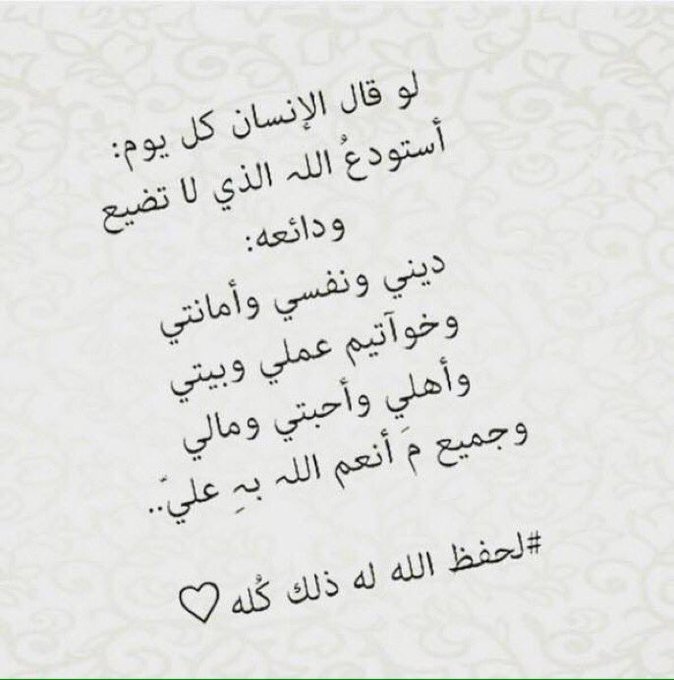 لو قال الإنسان كل يوم:
أستودعُ الله الذي لا تضيع
ودائعه:
ديني ونفسي وأمانتي
وخوآتيم عملي وبيتي
وأهلي وأحبتي ومالي
وجميع مَ أنعم الله بهِ عليّ..
#لحفظ الله له ذلك كُله ♡